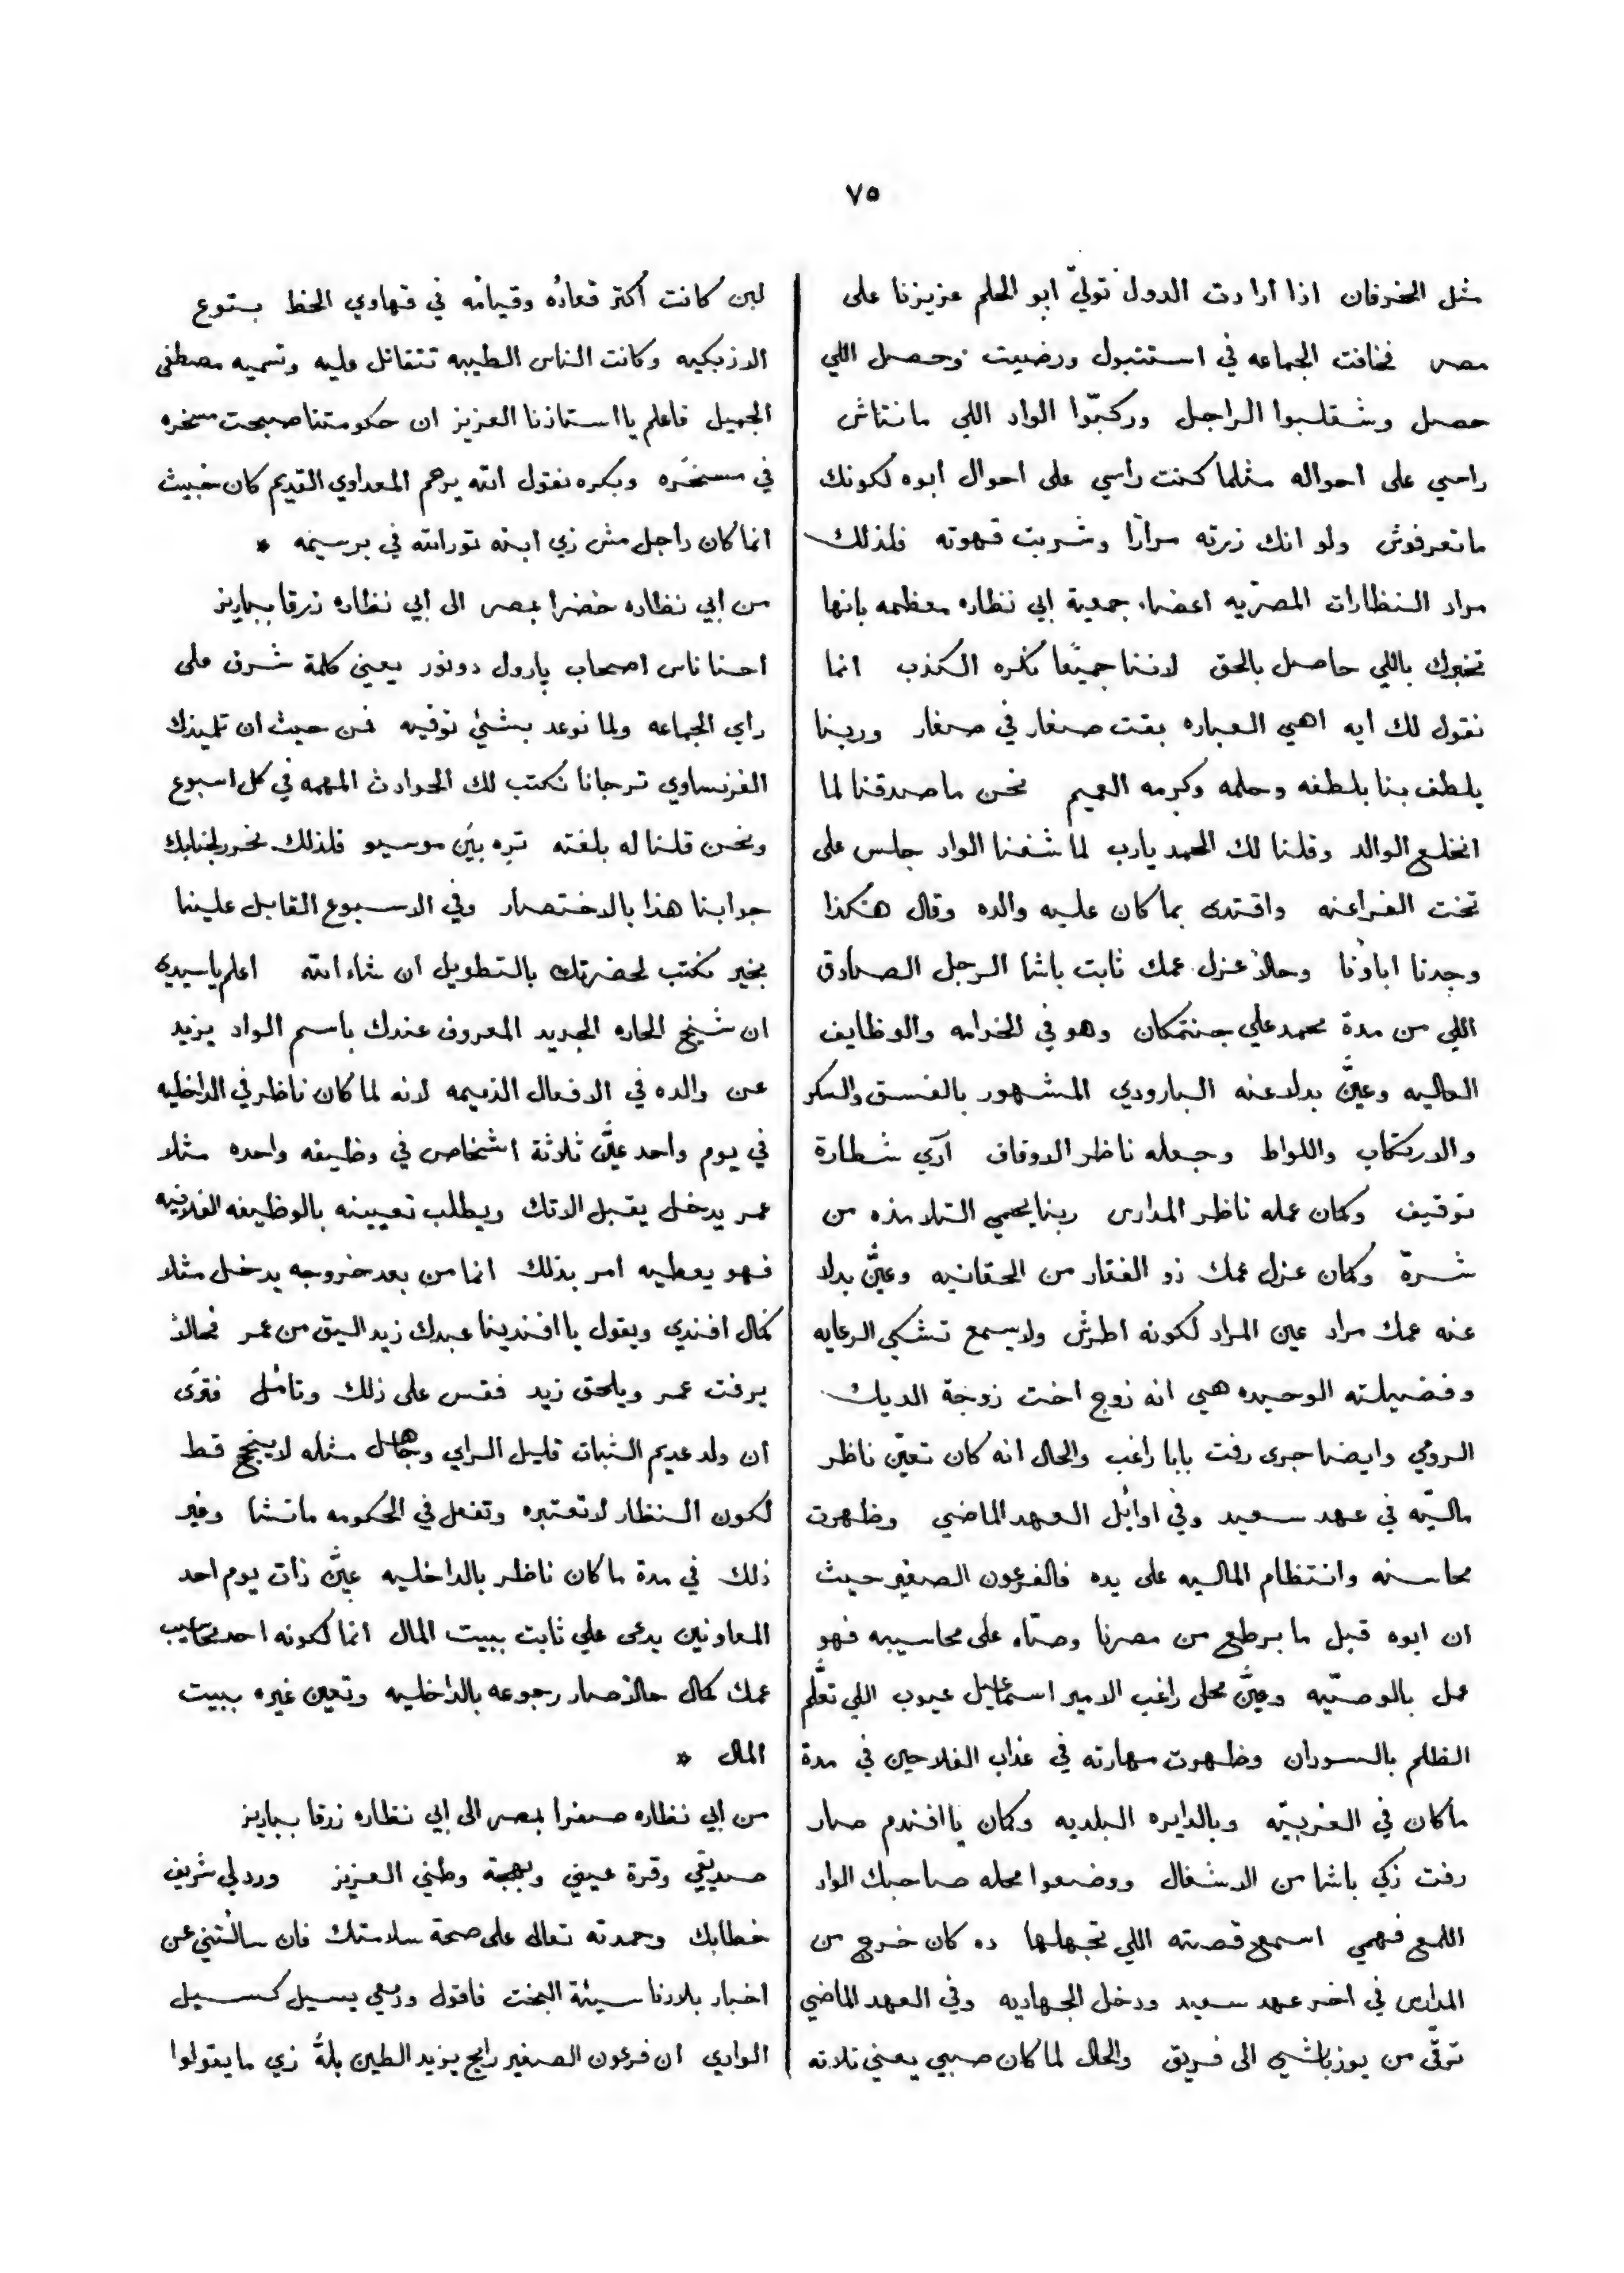 ٧٥
مثل الخرفان اذا ارادت الدول تولّي ابو الحلم عزيزنا على
مصر فخافت الجماعه في استنبول ورضيت وحصل اللي
حصل وشقلبوا الراجل وركبّوا الواد اللي مانتاش
راسي على احواله مثلما كنت راسي على احوال ابوه لكونك
ماتعرفوش ولو انك زرته مرارًا وشربت قهوته فلذلك
مراد النظارات المصريّه اعضاء جمعية ابي نظاره معظمه بانها
تخبرك باللي حاصل بالحق لاننا جميعًا نكره الكذب انما
نقول لك ايه اهي العباره بقت صغار في صغار وربنا
يلطف بنا بلطفه وحلمه وكرمه العميم نحن ماصدقنا لما
انخلع الوالد وقلنا لك الحمد يارب لما شفنا الواد جلس على
تخت الفراعنه واقتدى بما كان عليه والده وقال هكذا
وجدنا اباؤنا وحالاً عزل عمك ثابت باشا الرجل الصادق
اللي من مدة محمد علي جنتمكان وهو في الخدامه والوظايف
العاليه وعيَّن بدلا عنه البارودي المشهور بالفسق والسكر
والارتكاب واللواط وجعله ناظر الاوقاف آدي شطارة
توفيق وكمان عمله ناظر المدارس ربنا يحمي التلامذه من
شرّه وكمان عزل عمك ذو الفقار من الحقانيه وعيَّن بدلا
عنه عمك مراد عين المراد لكونه اطرش ولايسمع تشكي الرعايه
وفضيلته الوحيده هي انه زوج اخت زوجة الديك
الرومي وايضا جرى رفت بابا راغب والحال انه كان تعيّن ناظر
ماليّه في عهد سعيد وفي اوائل العهد الماضي وظهرت
محاسنه وانتظام الماليه على يده فالفرعون الصغير حيث
ان ابوه قبل ما برطع من مصرنا وصّاه على محاسيبه فهو
عمل بالوصيّه وعيَّن محل راغب الامير اسماعيل عيوب اللي تعلَّم
الظلم بالسودان وظهرت مهارته في عذاب الفلاحين في مدة
ماكان في الغربيّه وبالدايره البلديه وكمان يا افندم صار
رفت زكي باشا من الاشغال ووضعوا محله صاحبك الواد
اللمع فهمي اسمع قصته اللي تجهلها ده كان خرج من
المدارس في اخر عهد سعيد ودخل الجهاديه وفي العهد الماضي
ترقّى من يوزباشي الى فريق والحال لما كان صبي يعني تلاته
لبن كانت أكثر قعاده وقيامه في قهاوي الحظ بتوع
الازبكيه وكانت الناس الطيبه تتقاتل عليه وتسميه مصطفى
الجميل فاعلم يا استاذنا العزيز ان حكومتنا صبحت مسخره
في مسخره وبكره نقول الله يرحم المعداوي القديم كان خبيث
انما كان راجل مش زي ابنه تورالله في برسيمه *
من ابي نظاره خضرا بمصر الى ابي نظاره زرقا بباريز
احنا ناس اصحاب پارول دونور يعني كلمة شرف على
راي الجماعه ولما نوعد بشئ نوفيه فمن حيث ان تلميذك
الفرنساوي ترجانا نكتب لك الحوادث المهمه في كل اسبوع
ونحن قلنا له بلغته تره بين موسيو فلذلك نحرر لجنابك
جوابنا هذا بالاختصار وفي الاسبوع القابل علينا
بخير نكتب لحضرتك بالتطويل ان شاء الله اعلم ياسيدي
ان شيخ الحاره الجديد المعروف عندك باسم الواد يزيد
عن والده في الافعال الذميمه لانه لما كان ناظر في الداخليه
في يوم واحد عيَّن ثلاثة اشخاص في وظيفه واحده مثلا
عمر يدخل يقبل الاتك ويطلب تعيينه بالوظيفه الفلانيه
فهو يعطيه امر بذلك انما من بعد خروجه يدخل مثلا
كمال افندي ويقول يا افندينا عبدك زيد اليق من عمر فحالاً
يرفت عمر ويلحق زيد فقس على ذلك وتأمل فترى
ان ولد عديم الثبات قليل الراي وجاهل مثله لاينجح قط
لكون النظار لاتعتبره وتفعل في الحكومه ماتشا وغير
ذلك في مدة ماكان ناظر بالداخليه عيَّن ذات يوم احد
المعاونين يدعى علي ثابت ببيت المال انما لكونه احد محاسيب
عمك كمال حالاً صار رجوعه بالداخليه وتعين غيره ببيت
المال *
من ابي نظاره صفرا بمصر الى ابي نظاره زرقا بباريز
صديقي وقرة عيني وبهجة وطني العزيز وردلي شريف
خطابك وحمدته تعالى على صحة سلامتك فان سالتني عن
اخبار بلادنا سيئة البخت فاقول ودمعي يسيل كسيل
الوادي ان فرعون الصغير رايح يزيد الطين بلةً زي ما يقولوا